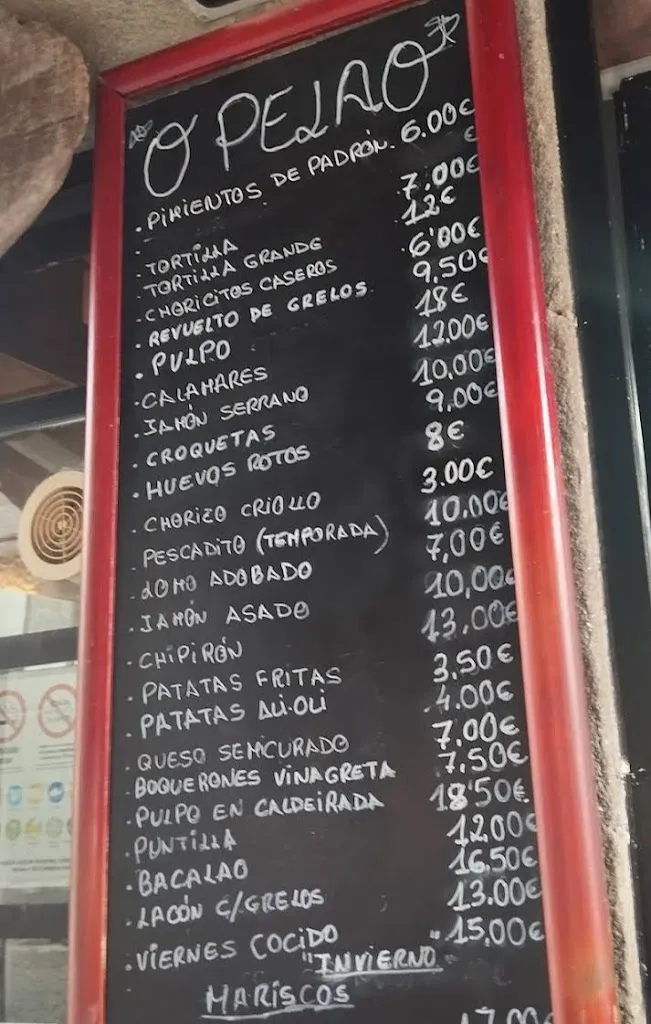 O PELAO
. PIMIENTOS DE PADRÓN. 6.00€
€
. TORTILLA 7.00€
. TORTILLA GRANDE 12€
. CHORICITOS CASEROS 6'00€
. REVUELTO DE GRELOS 9,50€
. PULPO 18€
. CALAMARES 12,00€
. JAMÓN SERRANO 10,00€
. CROQUETAS 9,00€
. HUEVOS ROTOS 8€
. CHORIZO CRIOLLO 3.00€
. PESCADITO (TEMPORADA) 10,00€
. LOMO ADOBADO 7,00€
. JAMÓN ASADO 10,00€
. CHIPIRÓN 13,00€
. PATATAS FRITAS 3,50€
. PATATAS ALI-OLI 4.00€
. QUESO SEMICURADO 7,00€
. BOQUERONES VINAGRETA 7,50€
. PULPO EN CALDEIRADA 18'50€
. PUNTILLA 12,00€
. BACALAO 16,50€
. LACÓN C/GRELOS 13.00€
. VIERNES COCIDO 15,00€
"INVIERNO"
MARISCOS